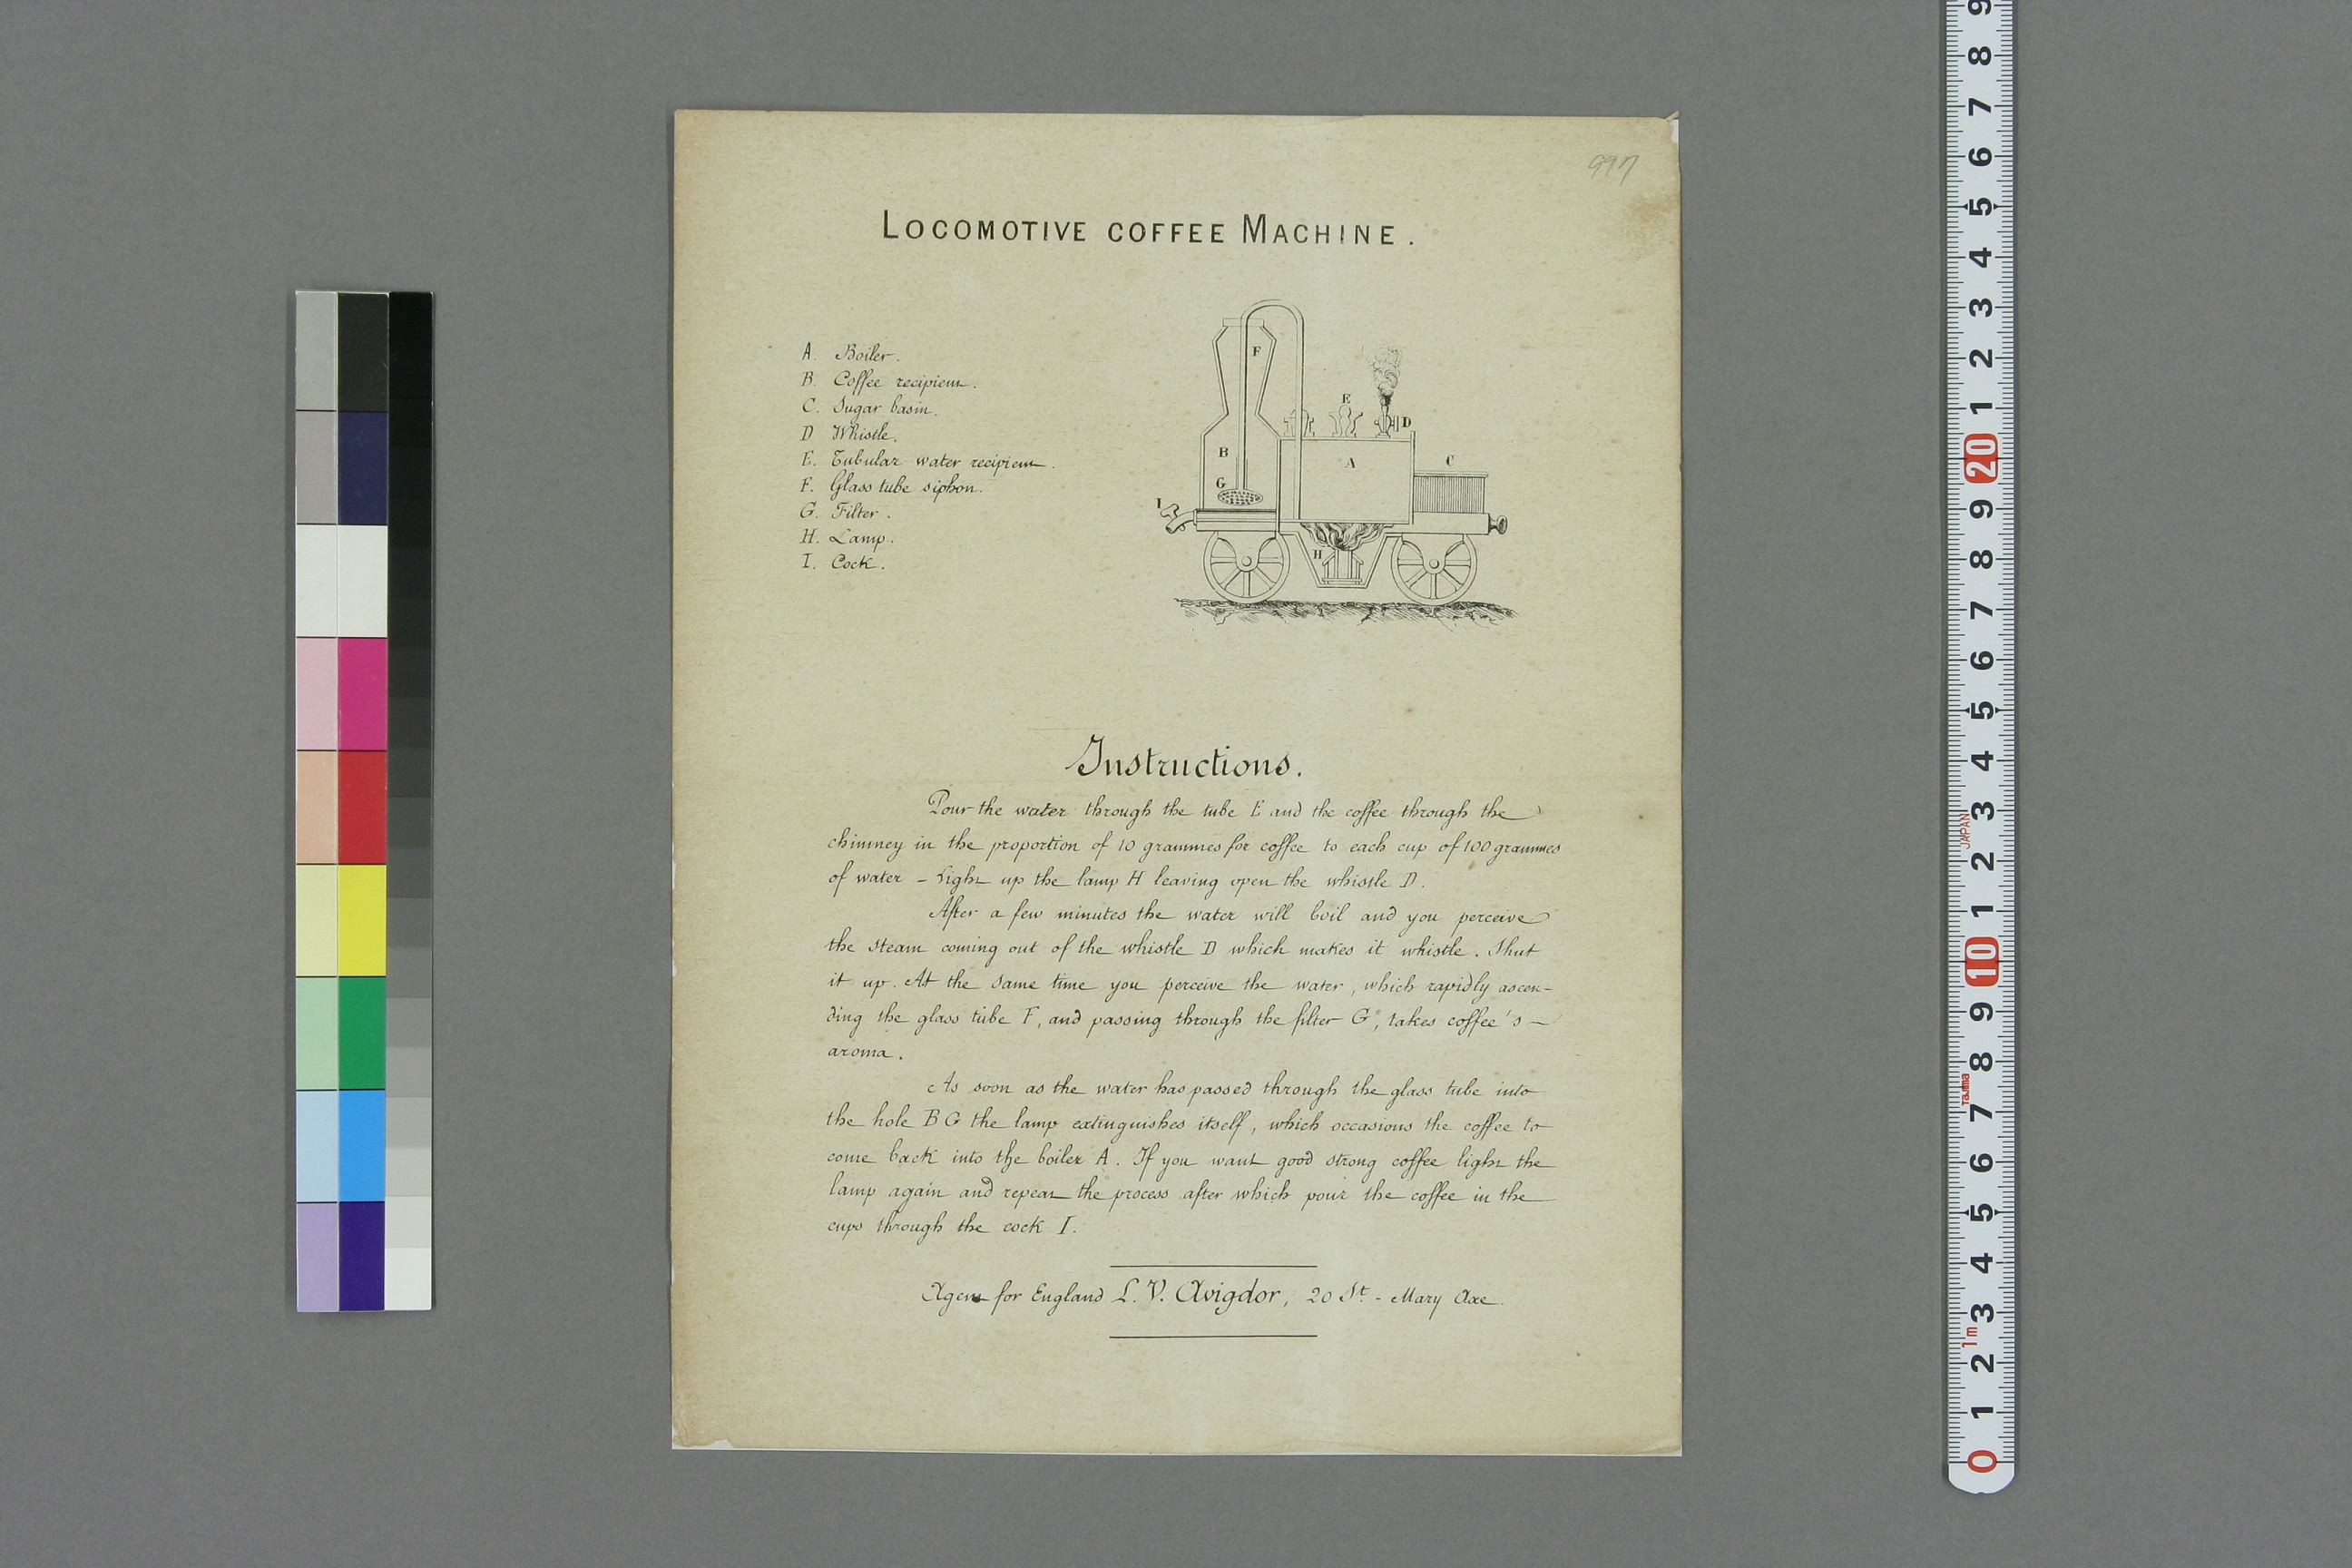 997
LOCOMOTIVE COFFEE MACHINE.
A. Boiler.
B. Coffee recipient.
C. Sugar basin.
D Whistle.
E. Tubular water recipient.
F. Glass tube siphon.
G. Filter.
H. Lamp.
I. Cock.
F
E
D
B
A
C
G
I
H
Instructions.
Pour the water through the tube E and the coffee through the
chimney in the proportion of 10 grammes for coffee to each cup of 100 grammes
of water – Light up the lamp H leaving open the whistle D.
After a few minutes the water will boil and you perceive
the steam coming out of the whistle D which makes it whistle. Shut
it up. At the same time you perceive the water, which rapidly ascen-
ding the glass tube F, and passing through the filter G, takes coffee's –
aroma.
As soon as the water has passed through the glass tube into
the hole B G the lamp extinguishes itself, which occasions the coffee to
come back into the boiler A. If you want good strong coffee light the
lamp again and repeat the process after which pour the coffee in the
cups through the cock I.
Agent for England L. V. Avigdor, 20 St - Mary Axe.
9
8
7
6
5
4
3
2
1
20
9
8
7
6
5
4
3
JAPAN
2
1
10
9
8
Tajima
7
6
5
4
3
1m
2
1
0